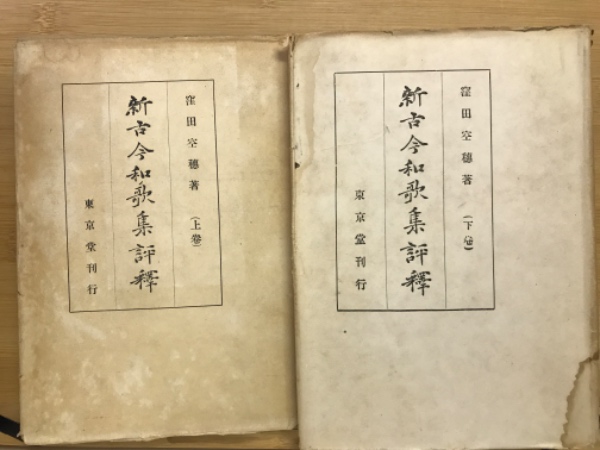 窪田空穗著(上卷)
新古今和歌集評釋
東京堂刊行
窪田空穗著(下卷)
新古今和歌集評釋
京京堂刊行